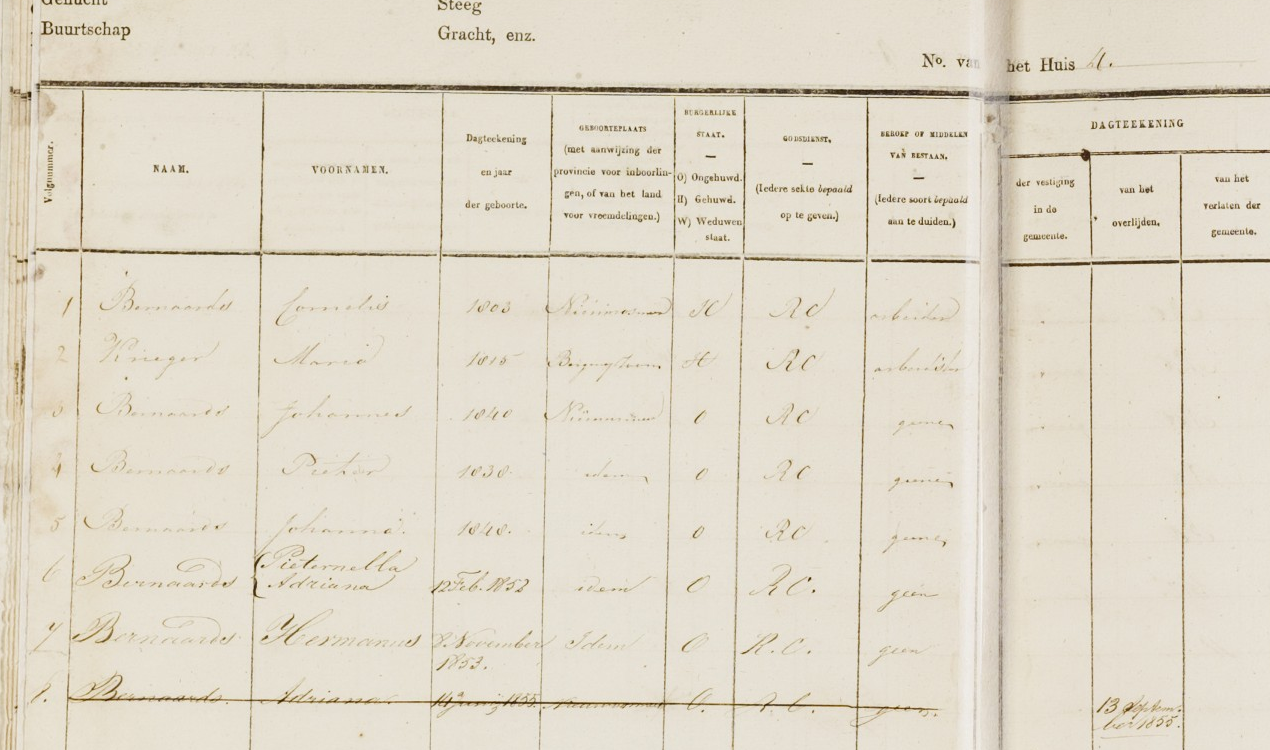 Gehucht Steeg
Buurtschap Gracht, enz.
No. van het Huis 4.
Volgnummer. NAAM. VOORNAMEN. Dagteekening en jaar der geboorte. GEBOORTEPLAATS (met aanwijzing der provincie voor inboorlingen, of van het land voor vreemdelingen.) BURGERLIJKE STAAT. — O) Ongehuwd. H) Gehuwd. W) Weduwen staat. GODSDIENST, — (Iedere sekte bepaald op te geven.) BEROEP OF MIDDELEN VAN BESTAAN. — (Iedere soort bepaald aan te duiden.) DAGTEEKENING der vestiging in de gemeente. van het overlijden. van het verlaten der gemeente.
1 Bernaards Cornelis 1803 H RC arbeider
2 Krieger Maria 1815 H RC arbeidster
3 Bernaards Johannes 1840 O RC geene
4 Bernaards Pieter 1838 idem O RC geene
5 Bernaards Johanna. 1848. idem O RC geene
6 Bernaards Pieternella Adriana 12 Feb. 1852 idem O R C. geen
7 Bernaards Hermanus 8 November 1853. Idem O R. C. geen
8. Bernaards. Adriana. 1855. O. R. C. geen. 13 September 1855.